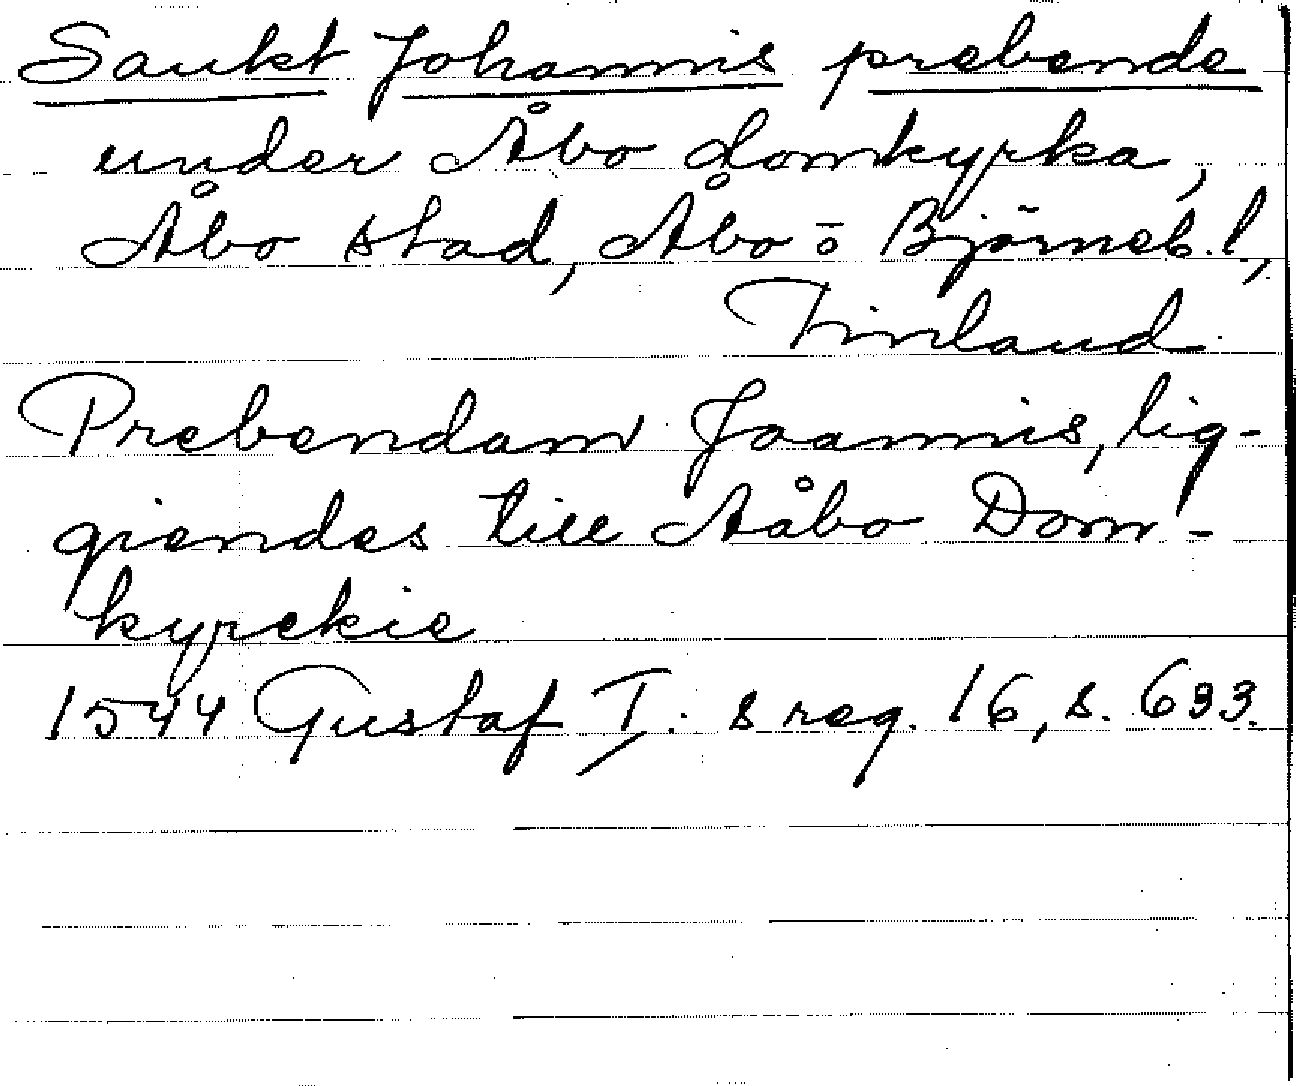 Sankt Johannis prebende
under Åbo domkyrka,
Åbo stad, Åbo o Björneb. l.,
Finland.
Prebendam Joannis, lig-
giendes till Aåbo Dom-
kyrckie
1544 Gustaf I:s reg. 16, s. 633.